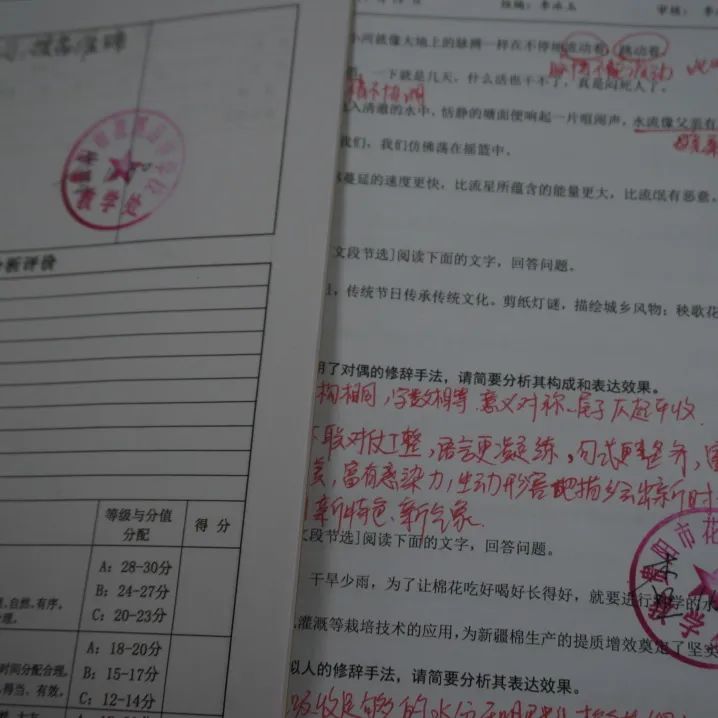 析评价
等级与分值
分配
得 分
A：28-30分
B：24-27分
C：20-23分
，自然，有序，
A：18-20分
B：15-17分
C：12-14分
时间分配合理，
得当、有效。
教学处
审核：
小河就像大地上的脉搏一样在不停地流动着，跳动着。
一下就是几天，什么活也干不了，真是闷死人了。
入清澈的水中，恬静的塘面便响起一片喧闹声，水流像父亲有
我们，我们仿佛荡在摇篮中。
蔓延的速度更快，比流星所蕴含的能量更大，比流氓有恶意，
文段节选]阅读下面的文字，回答问题。
，传统节日传承传统文化。剪纸灯谜，描绘城乡风物；秧歌花
用了对偶的修辞手法，请简要分析其构成和表达效果。
构相同，字数相等，意义对称，尾字仄起平收
联对仗工整，语言更凝练，句式更整齐，
美，富有感染力，生动形容地描写出新时
新特色、新气象.
文段节选]阅读下面的文字，回答问题。
干旱少雨，为了让棉花吃好喝好长得好，就要进行科学的水
灌溉等栽培技术的应用，为新疆棉生产的提质增效奠定了坚实
拟人的修辞手法，请简要分析其表达效果。
阳市花